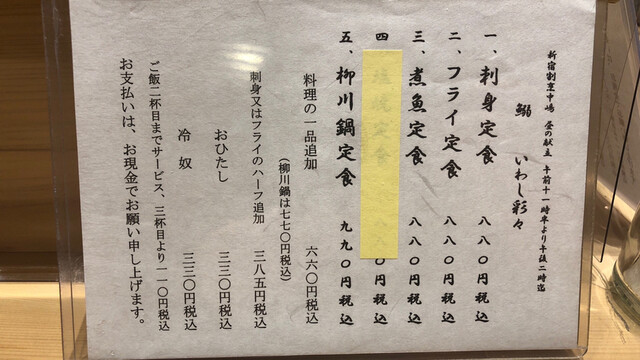 新宿割烹中嶋 昼の献立 午前十一時半より午後二時迄
鰯 いわし彩々
一、刺身定食 八八〇円税込
二、フライ定食 八八〇円税込
三、煮魚定食 八八〇円税込
四、
五、柳川鍋定食 九九〇円税込
料理の一品追加 六六〇円税込
(柳川鍋は七七〇円税込)
刺身又はフライのハーフ追加 三八五円税込
おひたし 三三〇円税込
冷奴 三三〇円税込
ご飯二杯目までサービス、三杯目より一一〇円税込
お支払いは、お現金でお願い申し上げます。